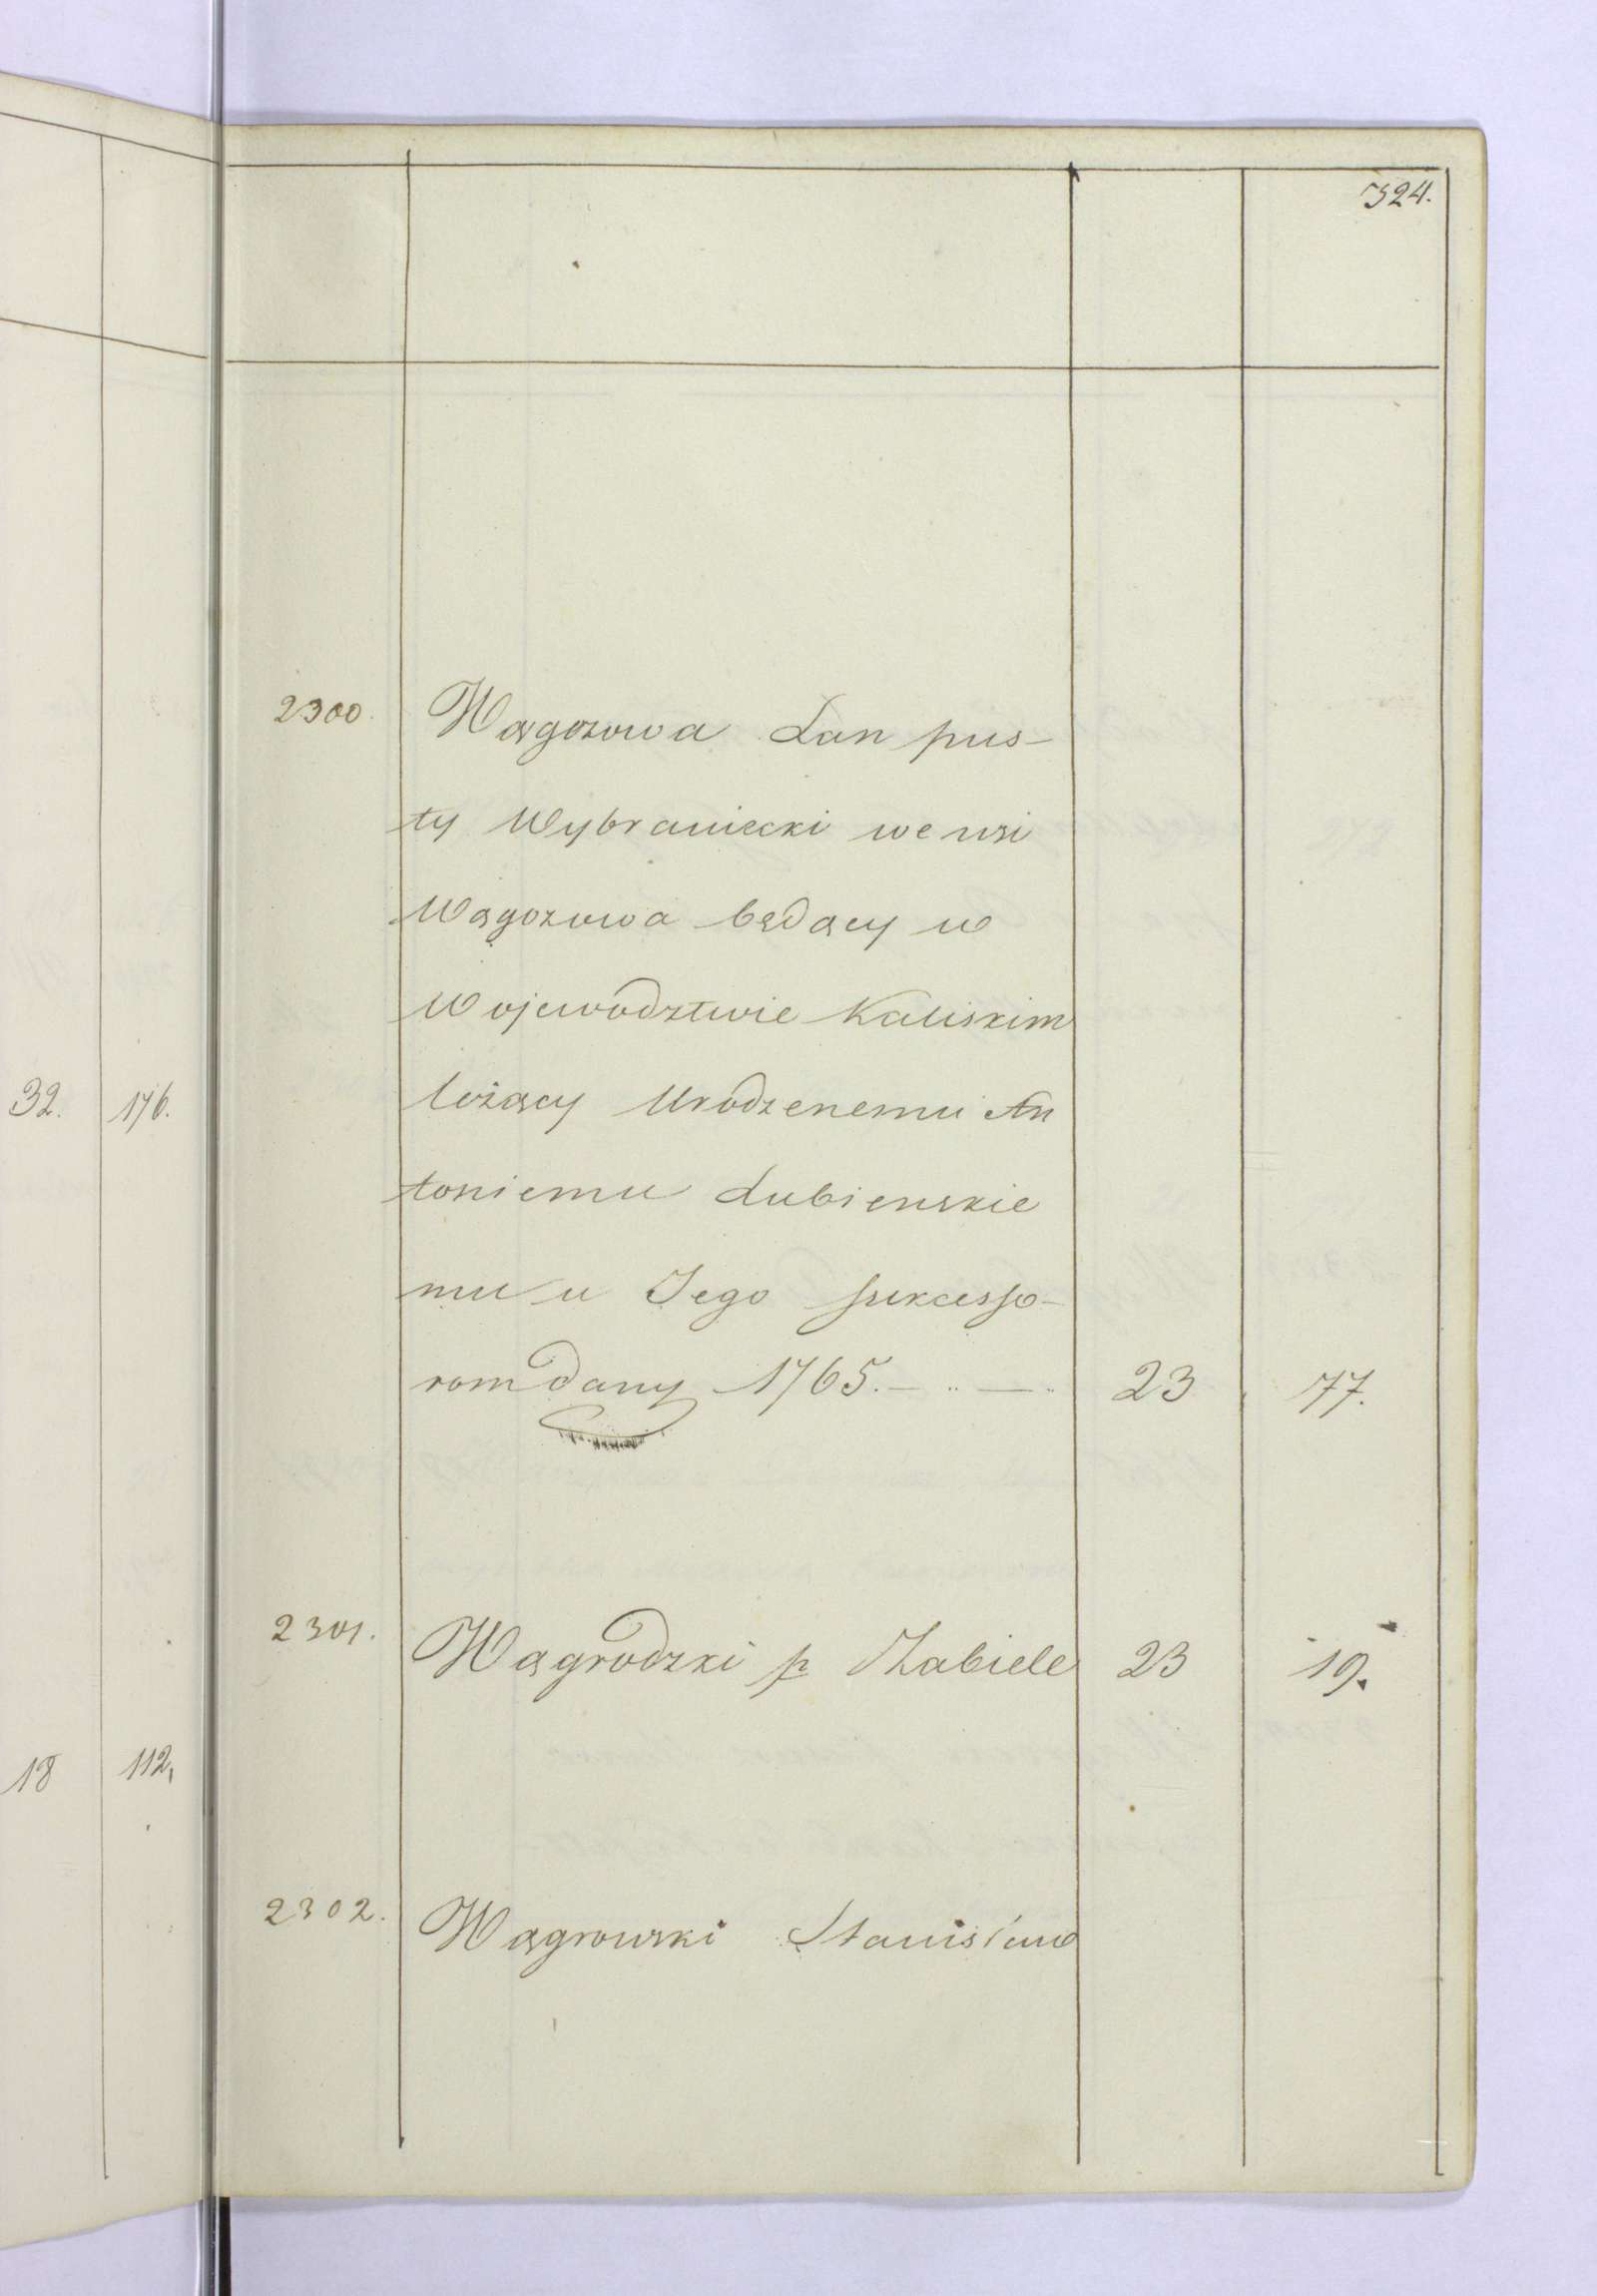 324.
2300. Wągozowa Łan pus-
ty Wybraniecki we wsi
Wągozowa będący w
Województwie Kaliskim
leżący Urodzenemu An
toniemu Lubienskie
mu u Jego sukcesso-
rom dany 1765. — .. — .. 23 77.
32. 176.
2301. Wągrodzki p Izabiele 23 19.
18 112.
2302. Wągrowski Stanisław